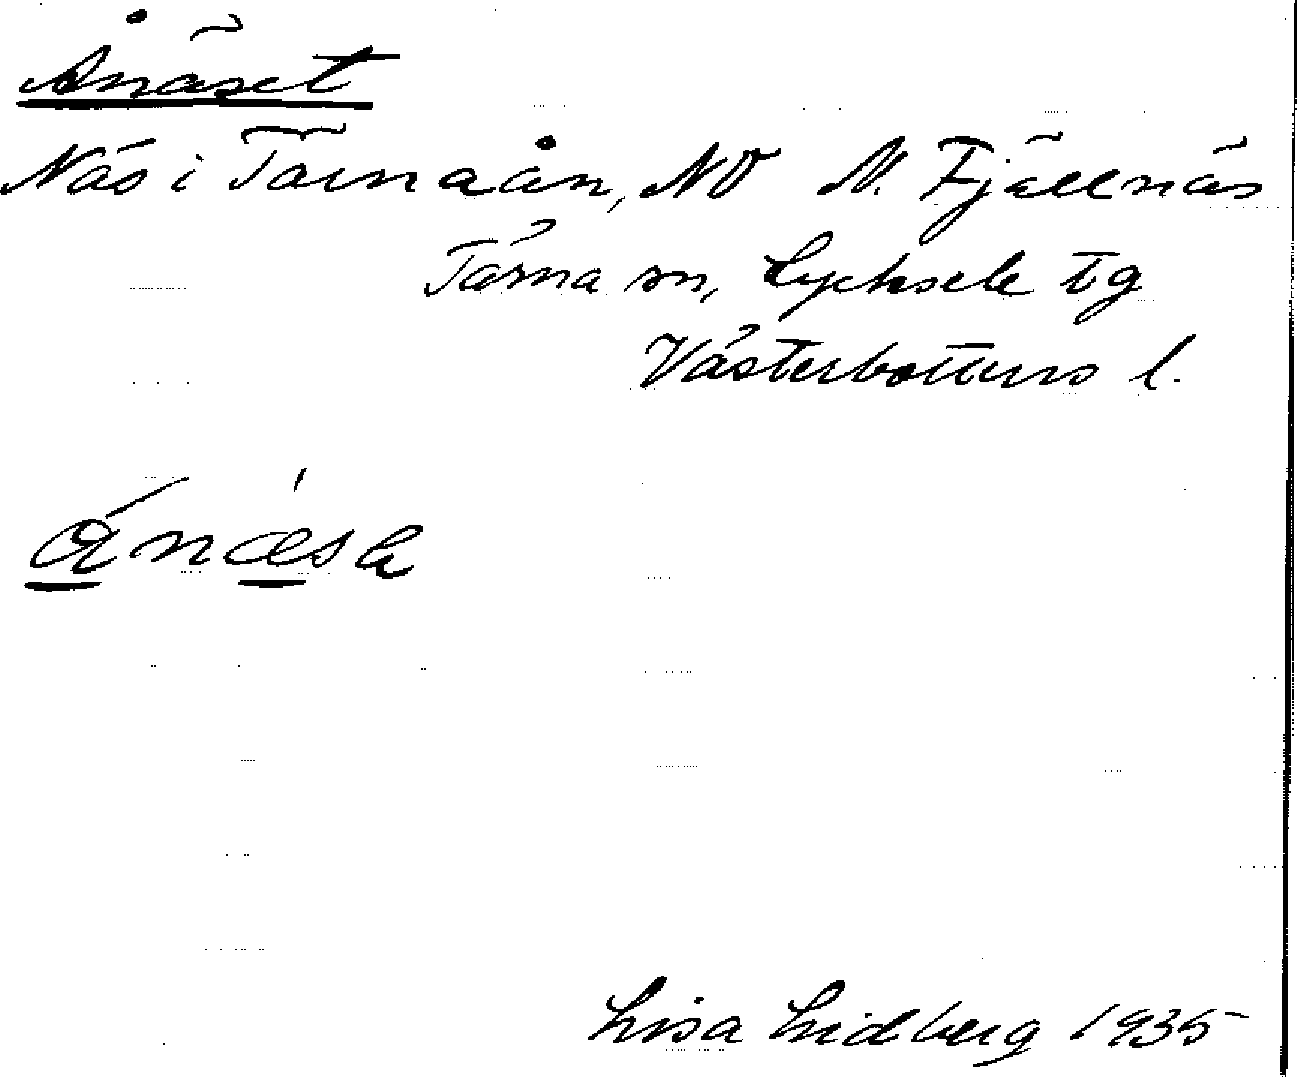 Ånäset
Näs i Tärnaån, NO N. Fjällnäs
Tärna sn, Lycksele tg
Västerbottens l.
Ánǽsa
Lisa Lidberg 1935